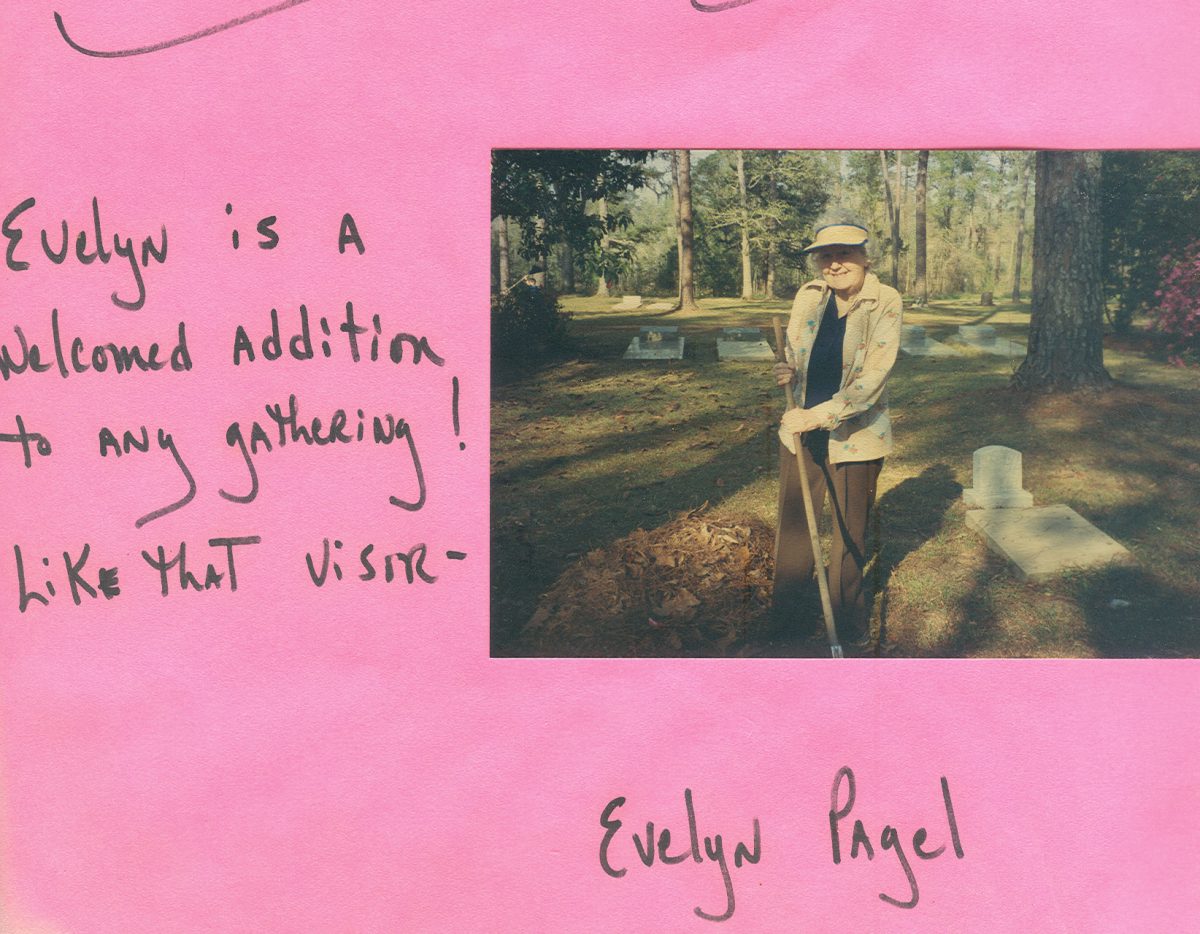 Evelyn is A
Welcomed Addition
to ANy gAtheriNg!
LiKE ThAT VisoR-
Evelyn PAgel